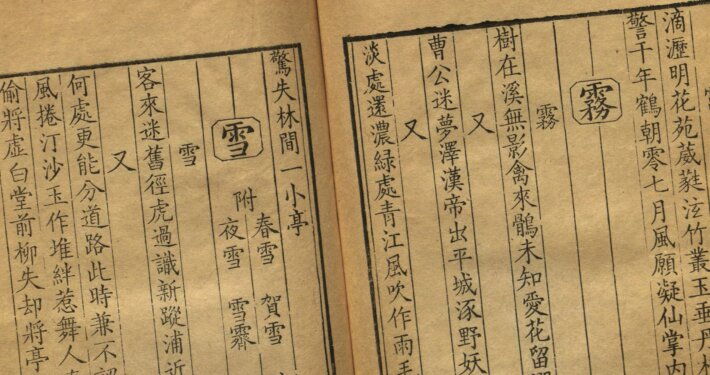 滴瀝明花苑葳蕤泫竹叢玉垂丹
警千年鶴朝零七月風願凝仙掌內
霧
霧
樹在溪無影禽來鶻未知愛花留
又
曹公迷夢澤漢帝出平城涿野妖
又
淡處還濃綠處青江風吹作雨
驚失林間一小亭
雪
附 春雪 賀雪
夜雪 雪霽
雪
客來迷舊徑虎過識新蹤浦近
又
何處更能分道路此時兼不
風捲汀沙玉作堆絆惹舞人
偷將虛白堂前柳失却將亭